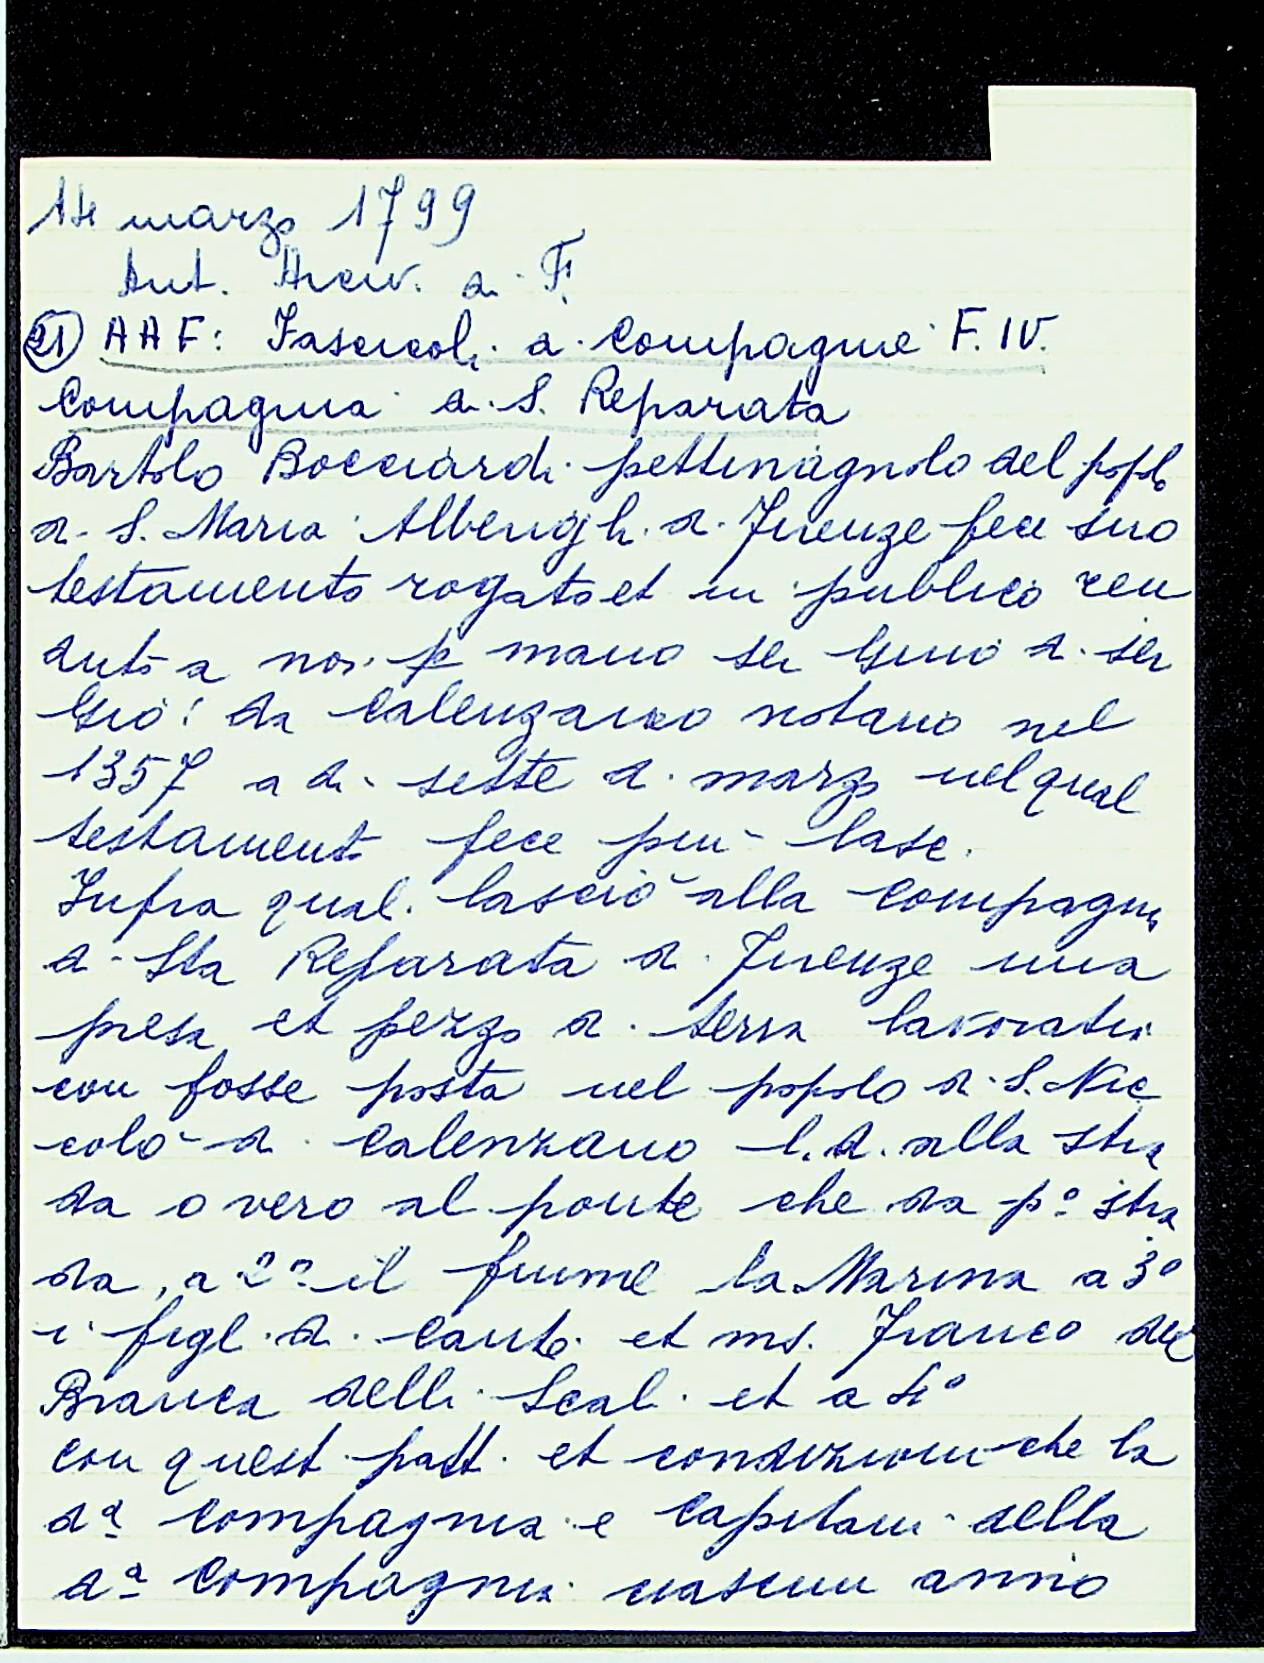 14 marzo 1799
Aut. Arciv. di F.
(21) AAF: Fascicoli di Compagnie F. IV.
Compagnia di S. Reparata
Bartolo Bocciardi pettinagnolo del popolo
di S. Maria Alberighi di Firenze fece suo
testamento rogato et in publico ren
duto a noi p mano ser Guio di ser
Gio: da Calenzano notaio nel
1357 a di sette di marzo nel qual
testamento fece piu lasc.
Infra quali lasciò alla compagnia
di Sta Reparata di Firenze una
presa et pezzo di terra lavoratia
con fosse posta nel popolo di S. Nic
colò di Calenzano l.d. alla stra
da o vero al ponte che da p° stra
da, a 2° il fiume la Marina a 3°
i figl. di Cante et ms. Franco del
Branca delli Scali et a 4°
con questi patti et condizioni che la
dª compagnia e Capitani della
dª Compagnia ciascun anno